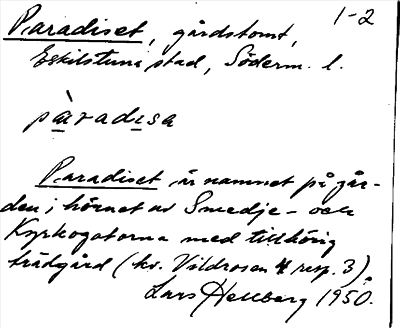 Paradiset, gårdstomt, 1-2
Eskilstuna stad, Söderm. l.
pàradisa
Paradiset är namnet på går-
den i hörnet av Smedje- och
Kyrkogatorna med tillhörig
trädgård (kv. Vildrosen 4 resp. 3).
Lars Hellberg 1950.